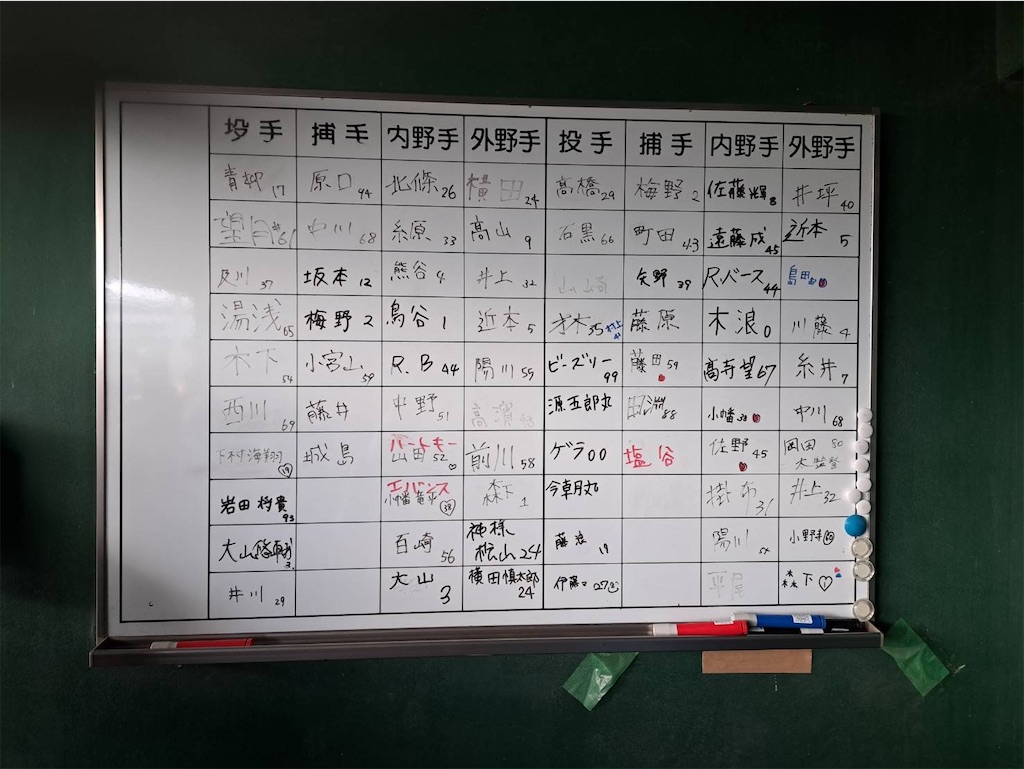 投手 捕手 内野手 外野手 投手 捕手 内野手 外野手
青柳17 原口94 北條26 横田24 高橋29 梅野2 佐藤輝8 井坪40
望月#61 中川68 糸原33 高山9 石黒66 町田43 遠藤成45 近本5
及川37 坂本12 熊谷4 井上32 山崎 矢野39 R.バース44 島田
湯浅65 梅野2 鳥谷1 近本5 才木35 村上41 藤原 木浪0 川藤4
木下54 小宮山59 R.B44 陽川55 ビーズリー99 藤田59 高寺望67 糸井7
西川69 藤井 中野51 高濱 源五郎丸 田淵88 小幡38 中川68
下村海翔19 城島 ハートキー 山田52 前川58 ゲラ00 塩谷 佐野45 岡田80
岩田将貴93 エバンス 小幡竜平38 森下1 今朝丸 掛布31 井上32
大山悠輔3 百崎56 神様 桧山24 藤浪19 陽川54 小野寺
井川29 大山3 横田慎太郎24 伊藤マ27 平尾 森下1